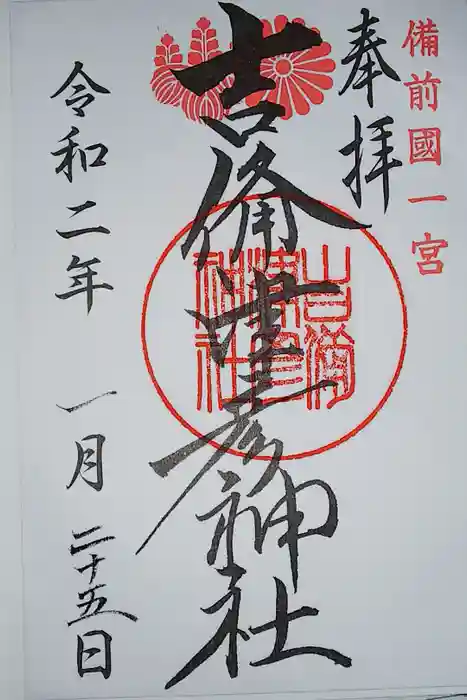 備前國一宮
奉拝
吉備津彦神社
吉備津彦神社
令和二年 一月 二十五日